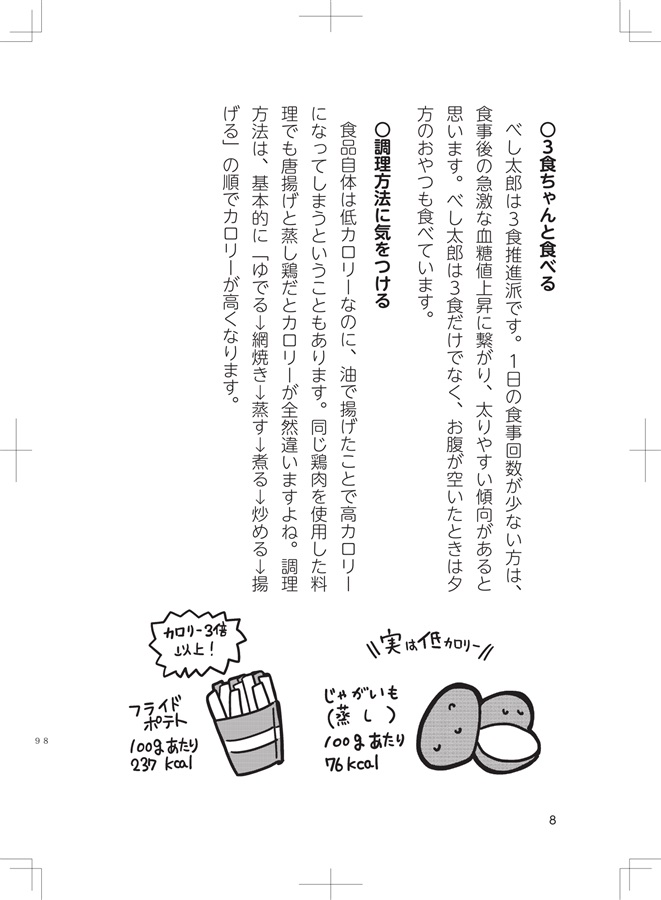 〇３食ちゃんと食べる
べし太郎は３食推進派です。１日の食事回数が少ない方は、
食事後の急激な血糖値上昇に繋がり、太りやすい傾向があると
思います。べし太郎は３食だけでなく、お腹が空いたときは夕
方のおやつも食べています。
〇調理方法に気をつける
食品自体は低カロリーなのに、油で揚げたことで高カロリー
になってしまうということもあります。同じ鶏肉を使用した料
理でも唐揚げと蒸し鶏だとカロリーが全然違いますよね。調理
方法は、基本的に「ゆでる→網焼き→蒸す→煮る→炒める→揚
げる」の順でカロリーが高くなります。
実は低カロリー
じゃがいも
(蒸し)
100gあたり
76kcal
カロリー3倍
以上！
フライド
ポテト
100gあたり
237 kcal
98
8